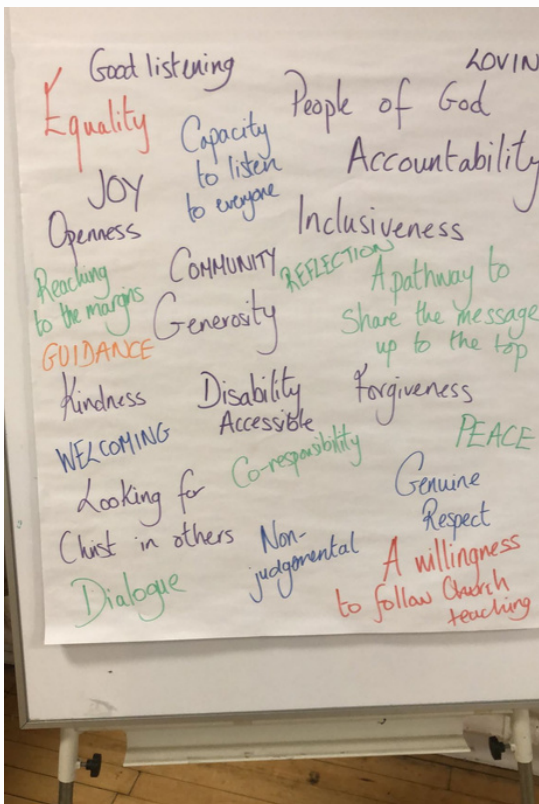 Good listening
LOVIN
Equality
People of God
Capacity
to listen
to everyone
Accountability
JOY
Openness
Inclusiveness
COMMUNITY
REFLECTION
Reaching
to the margins
A pathway to
Share the message
up to the top
Generosity
GUIDANCE
Kindness
Disability
Accessible
Forgiveness
WELCOMING
Co-responsibility
PEACE
Looking for
Christ in others
Genuine
Respect
Non-
judgemental
A willingness
to follow Church
teaching
Dialogue